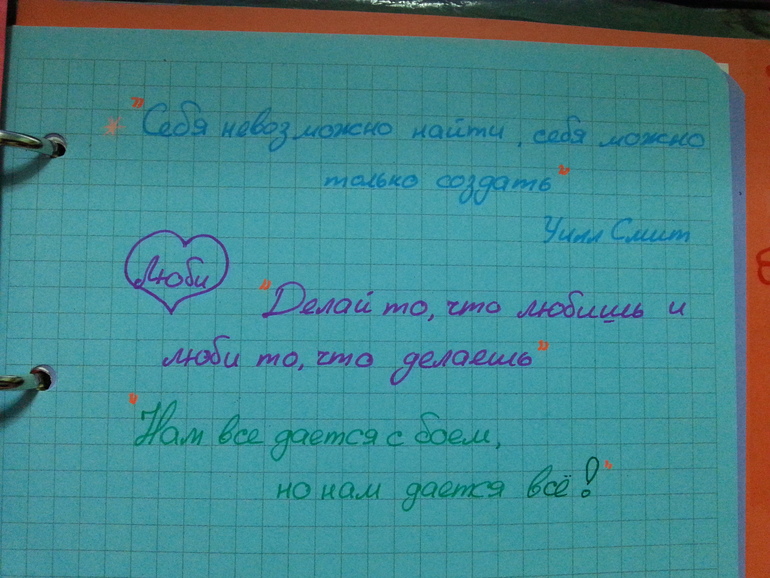 * "Себя невозможно найти, себя можно
только создать"
Уилл Смит
Люби
"Делай то, что любишь и
люби то, что делаешь"
"Нам все дается с боем,
но нам дается всё!"